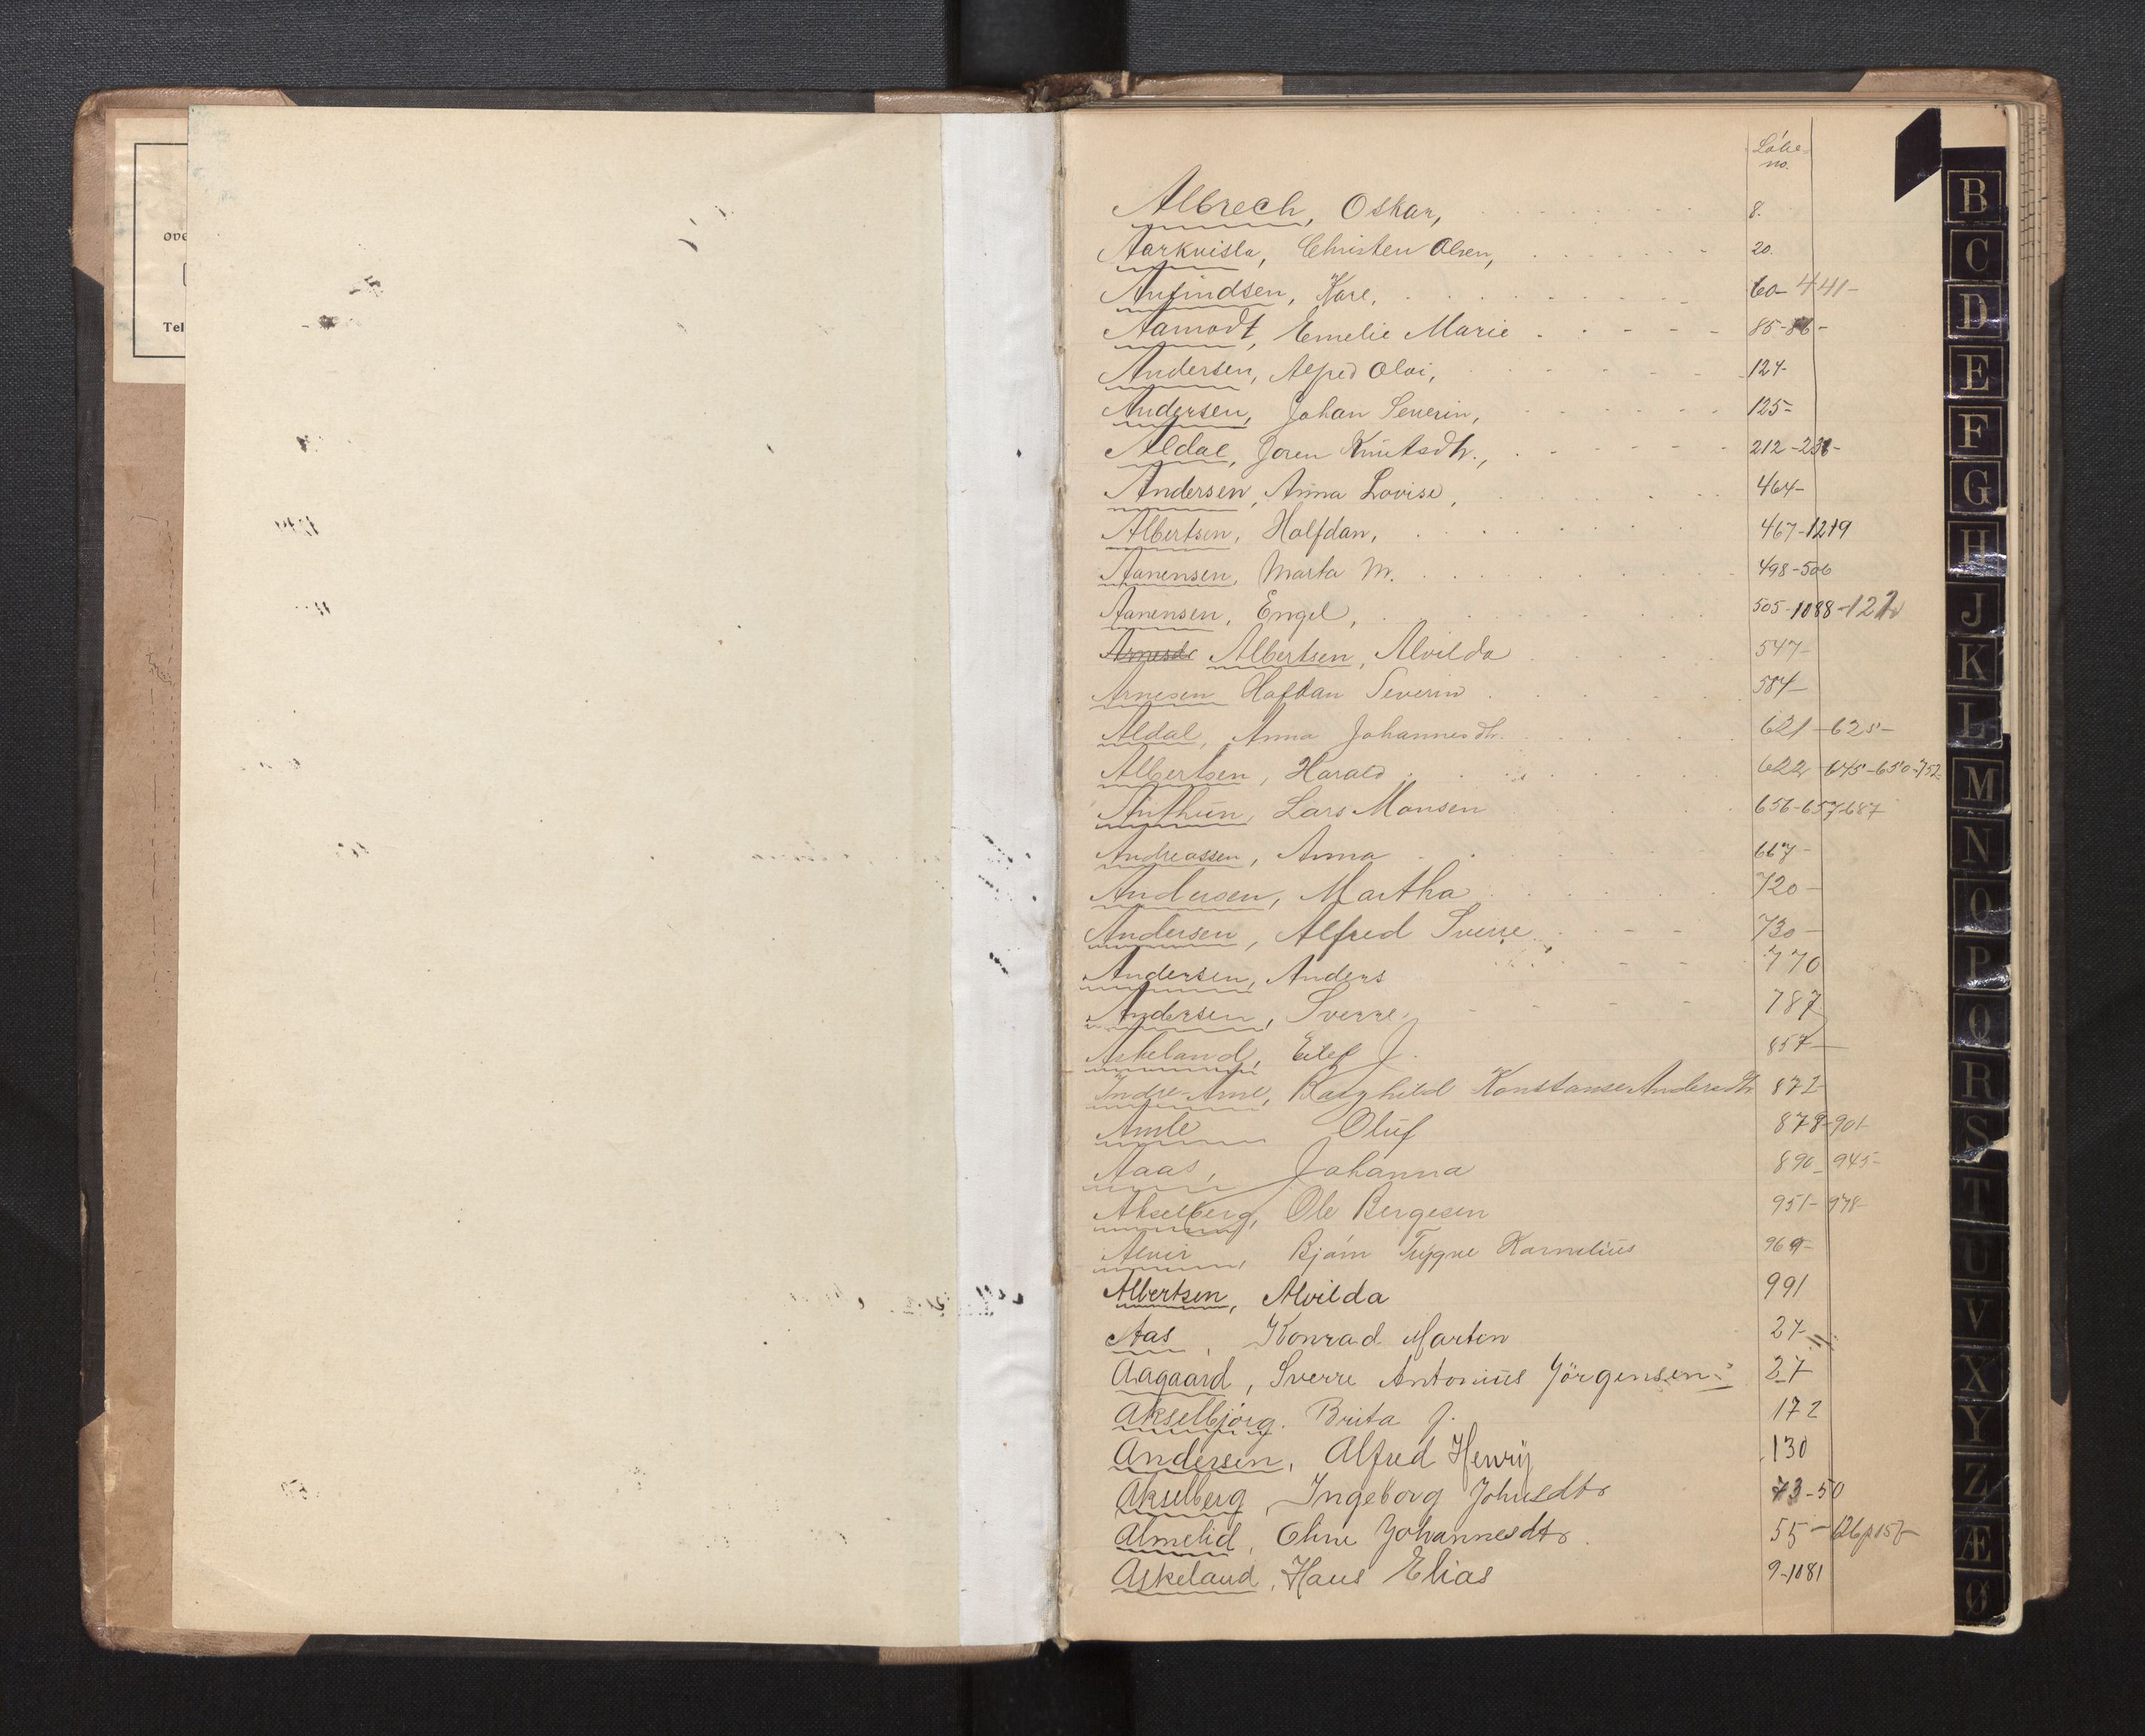 ove
Tel
Løbe
no.
Albrech, Oskar, 8.
Aarkvisla, Christen Olsen, 20.
Anfindsen, Kare, 60- 441-
Aamodt, Emelie Marie 85-86-
Andersen, Alfred Olai, 124-
Andersen, Johan Severin, 125-
Aldal, Joren Knutsdtr., 212-
Andersen, Anna Lovise, 464-
Albertsen, Halfdan, 467-1219
Aanensen, Marta M. 498-506
Aanensen, Engel, 505-1088-
Albertsen, Alvilda 547-
Arnesen Halfdan Severin 584-
Aldal, Anna Johannesdtr. 621-625-
Albertsen, Harald 622-645-650-752
Anthun, Lars Monsen 656-657-687
Andreassen, Anna 667-
Andersen, Martha 720-
Andersen, Alfred Sverre 730-
Andersen, Anders 770
Andersen, Sverre, 787
Askeland, Eilef J. 857-
Indre-Aml, Ragnhild Konstanse Andersdtr 872-
Amle Oluf 879-901-
Aaas, Johanna 890-945-
Akselberg, Ole Bergesen 951-978-
Alvir, Bjørn Trygve Kornelius 969-
Albertsen, Alvilda 991
Aas, Konrad Martin 27-
Aagaard, Sverre Antonius Jörgensen 27
Akselbjörg. Brita J. 172
Andersen, Alfred Henry 130
Akselberg, Ingeborg Johnsdtr 73-50
Almelid, Oline Johannesdtr. 55-
Askeland, Hans Elias 9-1081
B
C
D
E
F
G
H
J
K
L
M
N
O
P
Q
R
S
T
U
V
X
Y
Z
Æ
Ø